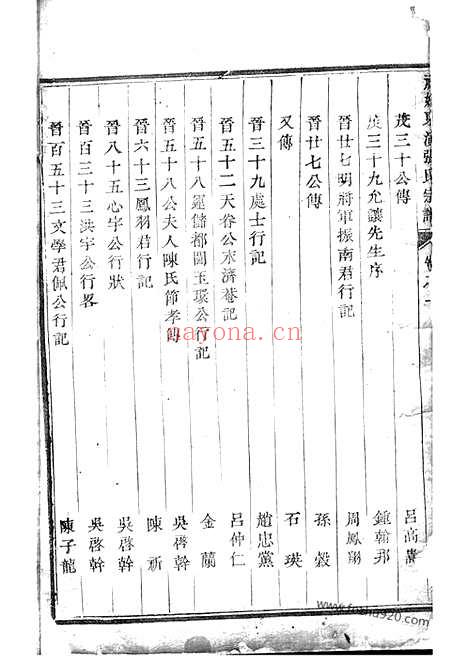 張氏宗譜
茂三十公傳 呂高
茂三十九允讓先生序 鍾翰邦
晉廿七明將軍振南君行記 周鳳翔
晉廿七公傳 孫穀
又傳 石瑛
晉三十九處士行記 趙忠黨
晉五十二天眷公水濟菴記 呂仲仁
晉五十八運儲都閫玉環公行記 金蘭
晉五十八公夫人陳氏節孝傳 吳啓幹
晉六十三鳳羽君行記 陳祈
晉八十五心宇公行狀 吳啓幹
晉百三十三洪宇公行畧 吳啓幹
晉百五十三文學君佩公行記 陳子龍
nayona.cn
www.foxha920.com